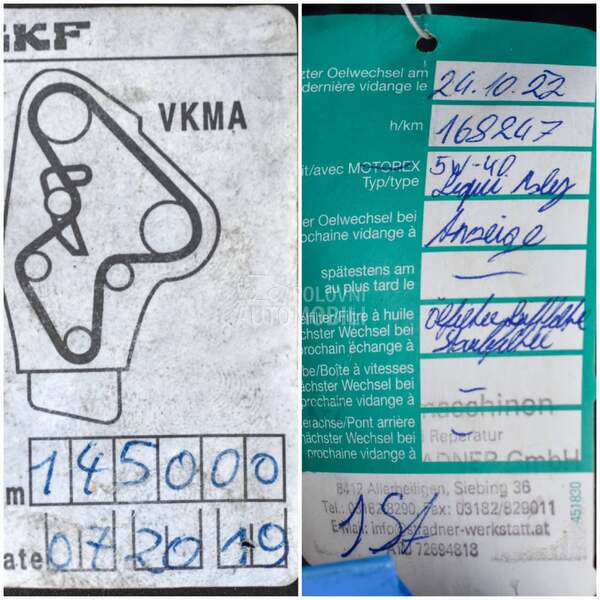 SKF
VKMA
m 145000
ate 07 2019
zter Oelwechsel am 24.10.22
dernière vidange le
h/km 168247
it/avec MOTOREX 5W-40
Typ/type Liqui Moly
er Oelwechsel bei Anzeige
ochaine vidange à
spätestens am —
au plus tard le
POLOVNI
AUTOMOBILI
elfilter/Filtre à huile Ölfilter Luftfilter
chster Wechsel bei
prochain échange à
be/Boîte à vitesses —
ächster Wechsel bei
prochaine vidange à
maschinen
erachse/Pont arrière —
Reperatur
nächster Wechsel bei
ADNER GmbH
prochaine vidange à
8412 Allerheiligen, Siebing 36
Tel.: 03182/8290, Fax: 03182/829011
E-mail: info@stradner-werkstatt.at
72694818
451830